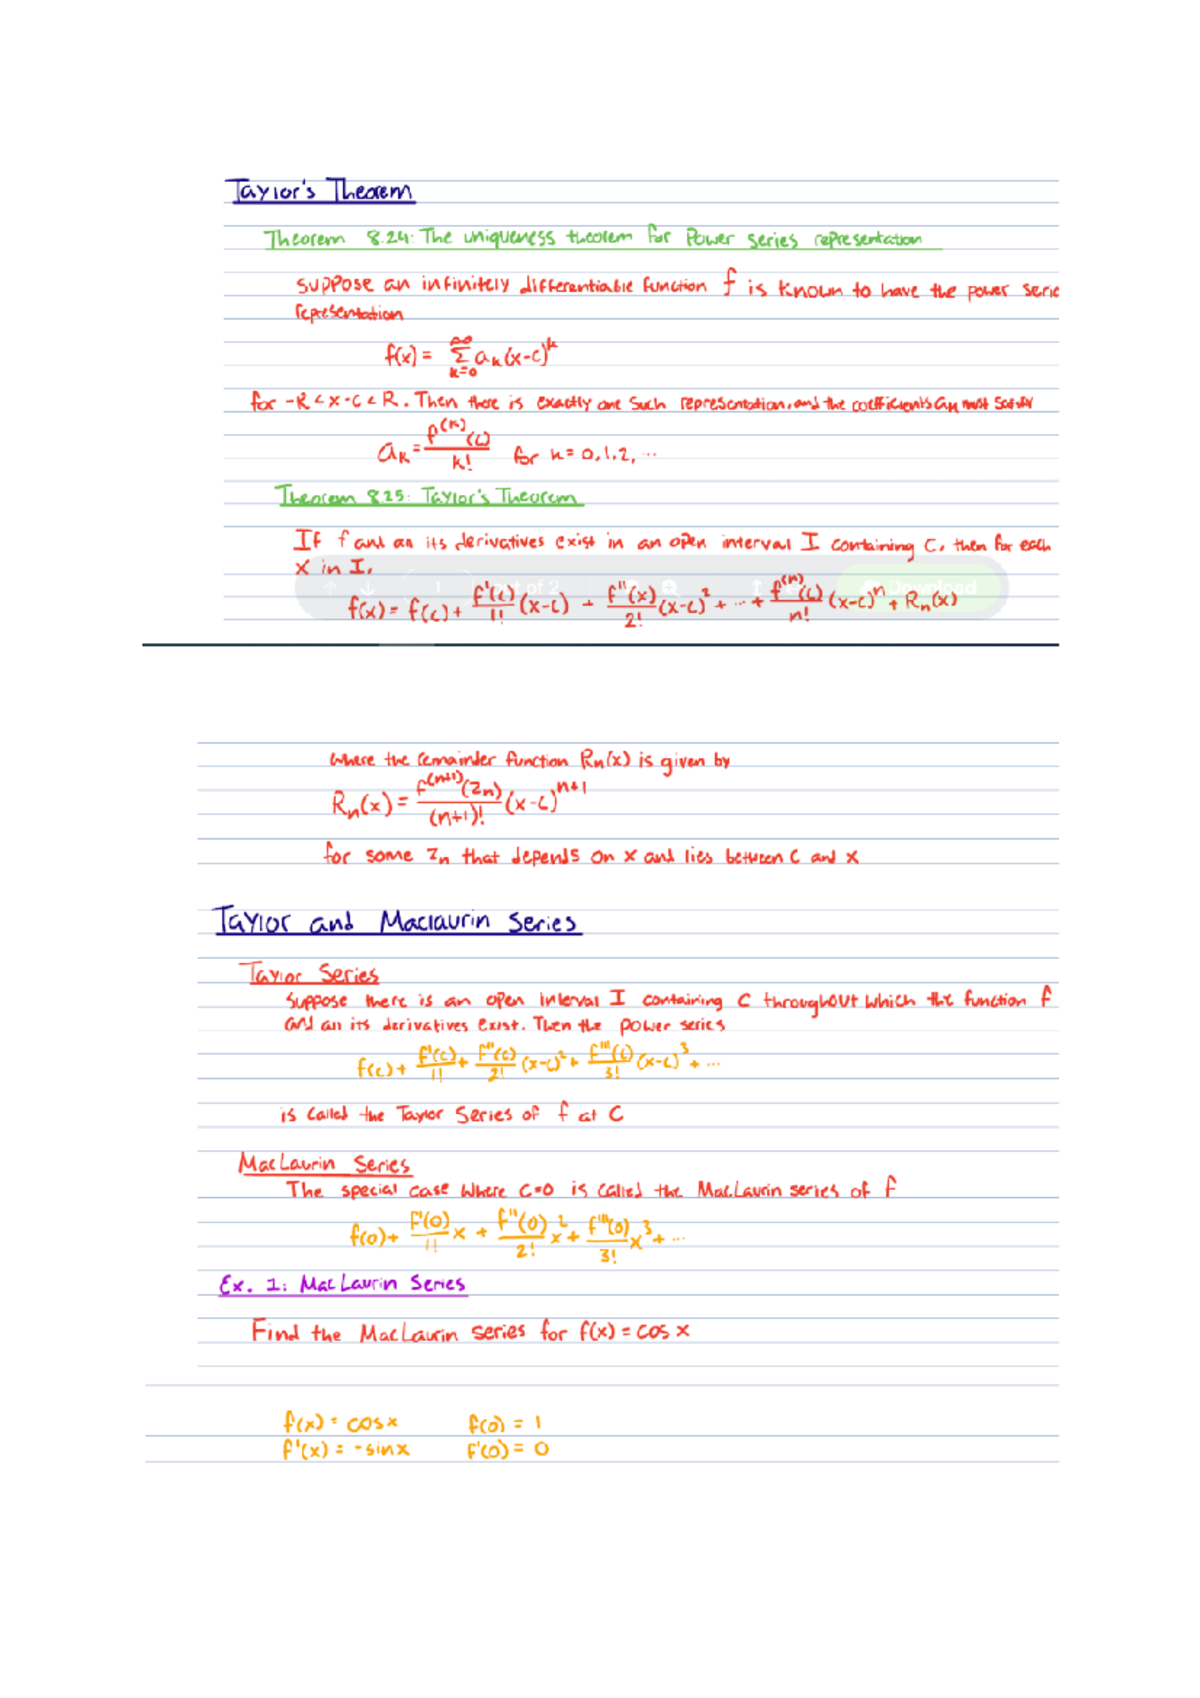 Taylor's Theorem
Theorem 8.24: The uniqueness theorem for Power series representation
Suppose an infinitely differentiable function f is known to have the power serie
representation
f(x) = ∞Σk=0 aₖ(x-c)ᵏ
for -R < x-c < R. Then there is exactly one such representation, and the coefficients aₖ must satisfy
aₖ = f⁽ᵏ⁾(c)/k! for k = 0,1,2, ...
Theorem 8.25: Taylor's Theorem
If f and all its derivatives exist in an open interval I containing c, then for each
x in I,
1 out of 2 Download
f(x) = f(c) + f'(c)/1! (x-c) + f''(x)/2! (x-c)² + ... + f⁽ⁿ⁾(c)/n! (x-c)ⁿ + Rₙ(x)
where the remainder function Rₙ(x) is given by
Rₙ(x) = f⁽ⁿ⁺¹⁾(zₙ)/(n+1)! (x-c)ⁿ⁺¹
for some zₙ that depends on x and lies between c and x
Taylor and Maclaurin Series
Taylor Series
Suppose there is an open interval I containing c throughout which the function f
and all its derivatives exist. Then the power series
f(c) + f'(c)/1! + f''(c)/2! (x-c)² + f'''(c)/3! (x-c)³ + ...
is called the Taylor Series of f at c
MacLaurin Series
The special case where c=0 is called the MacLaurin series of f
f(0) + f'(0)/1! x + f''(0)/2! x² + f'''(0)/3! x³ + ...
Ex. 1: MacLaurin Series
Find the MacLaurin series for f(x) = cos x
f(x) = cosx f(0) = 1
f'(x) = -sinx f'(0) = 0